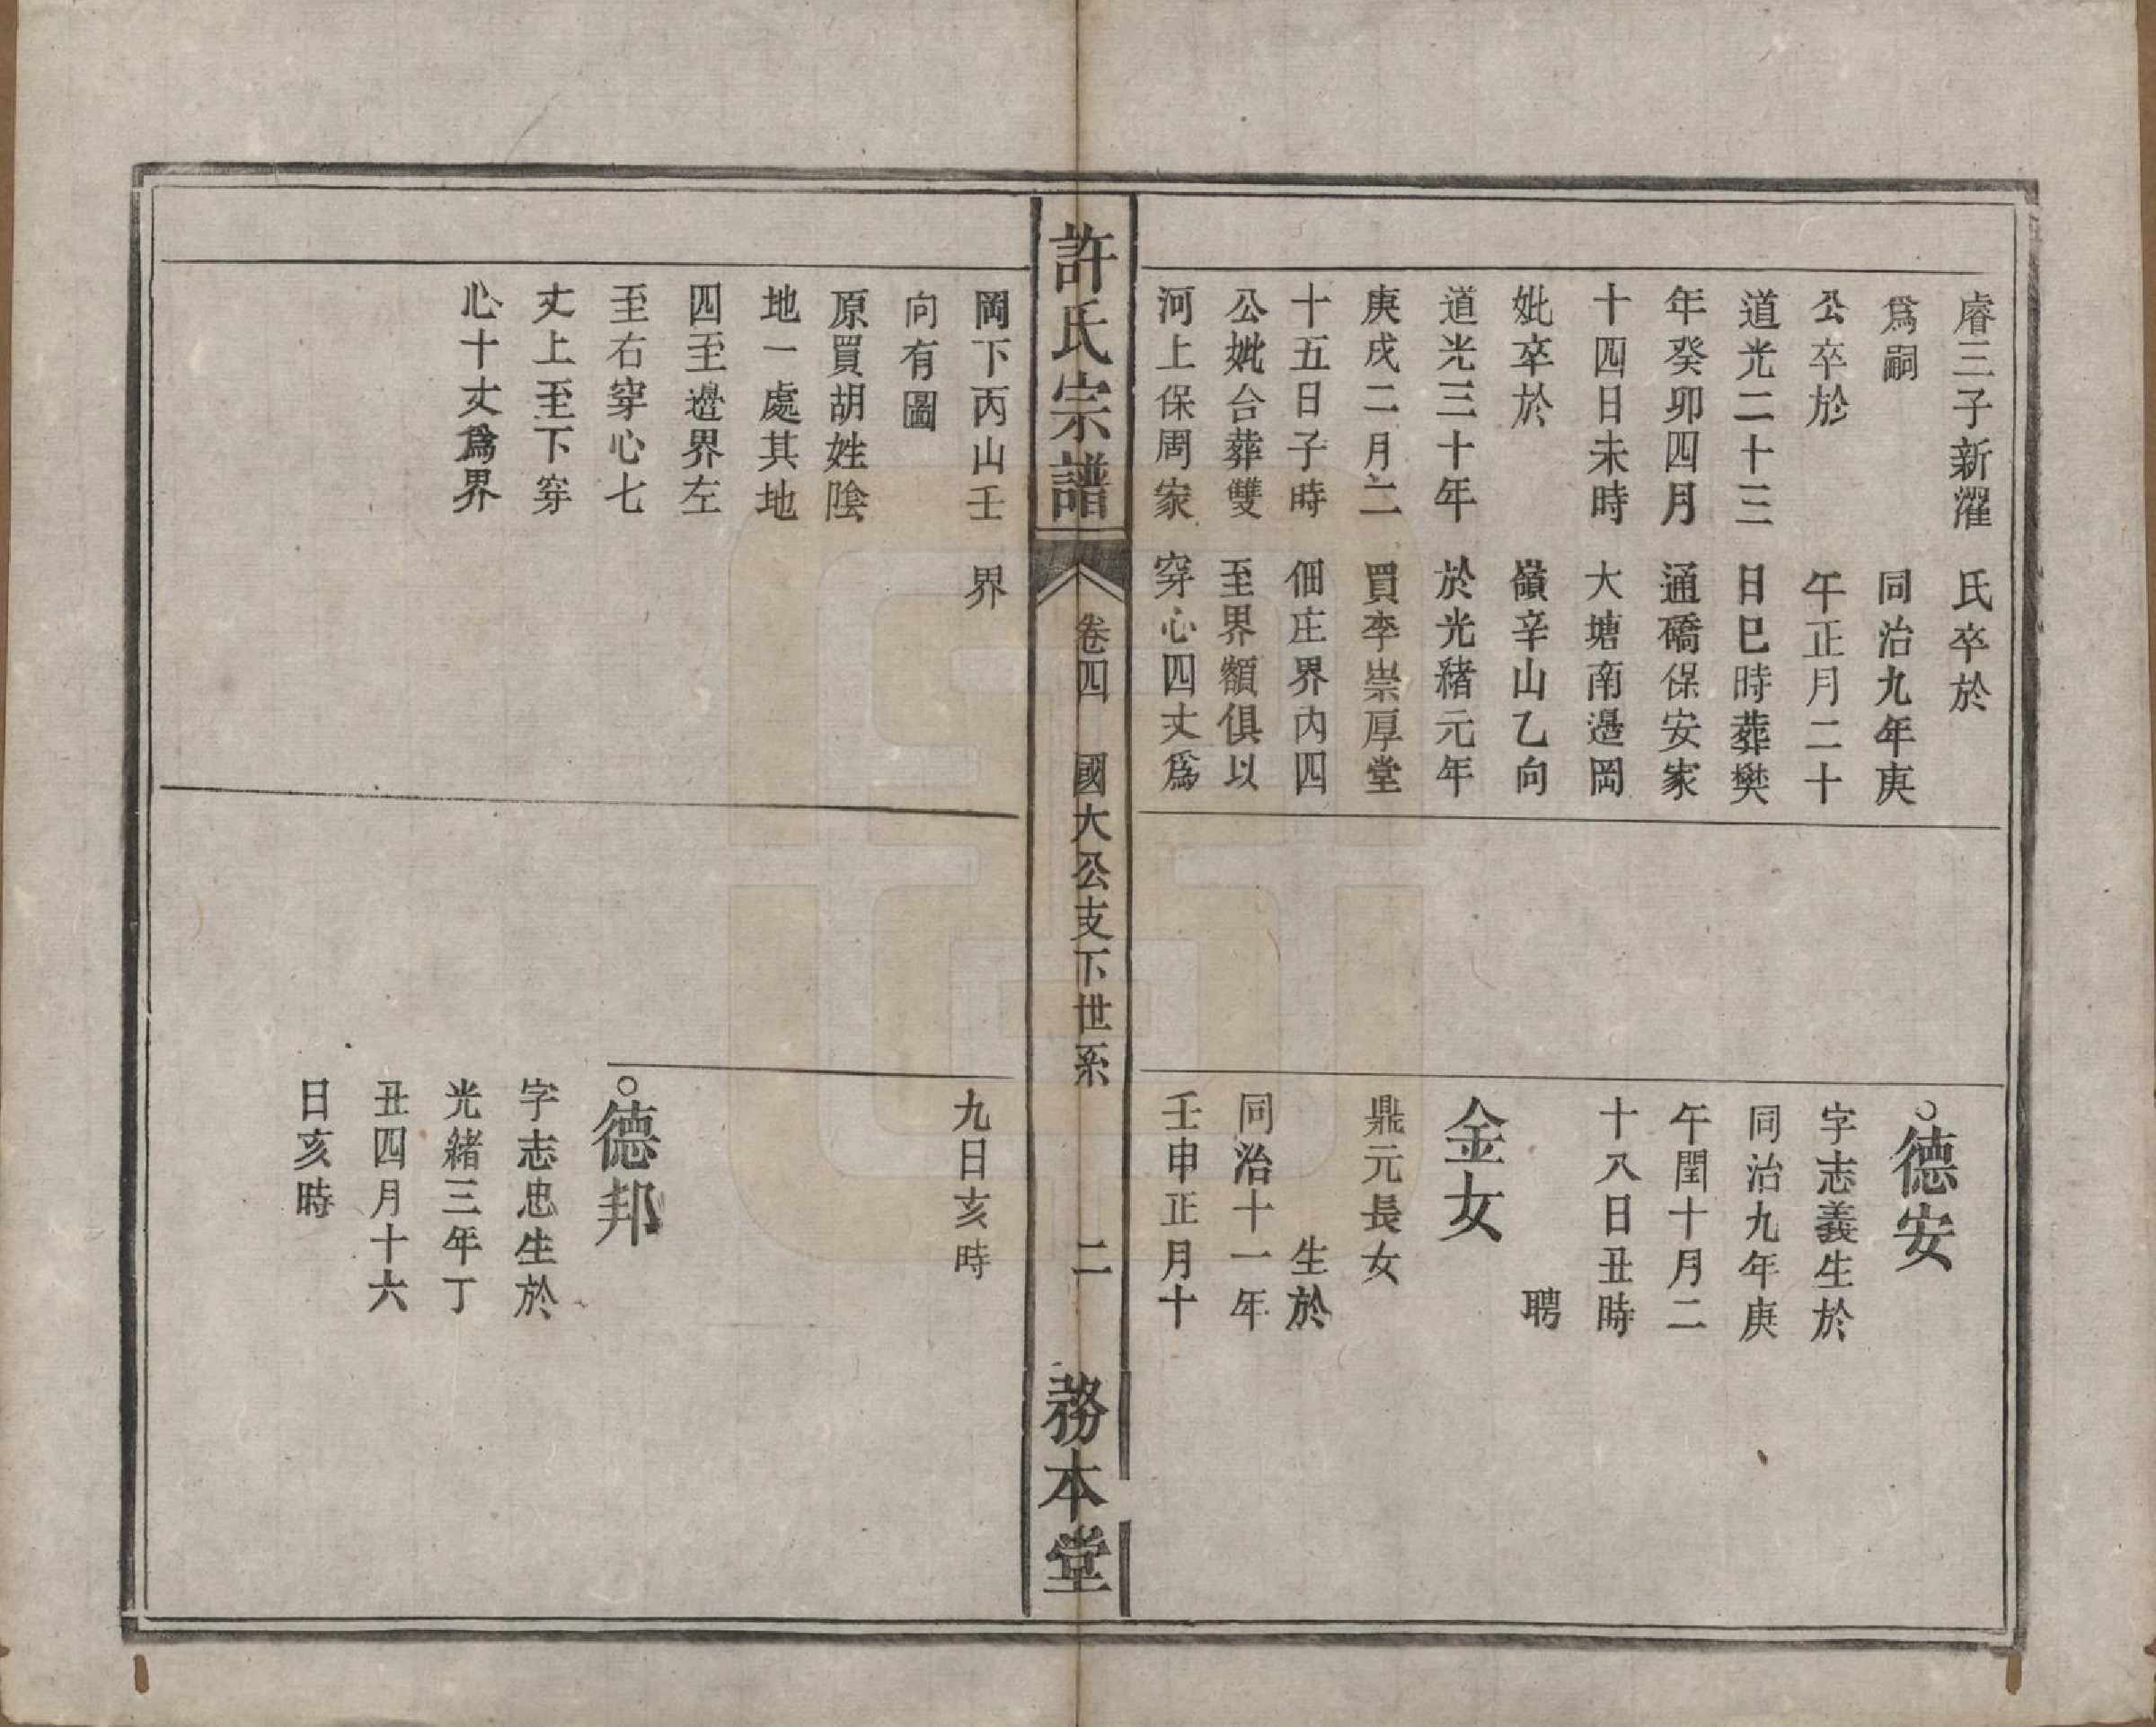 睿三子新濯
爲嗣
公卒於
道光二十三
年癸卯四月
十四日未時
妣卒於
道光三十年
庚戌二月二
十五日子時
公妣合葬雙
河上保周家
氏卒於
同治九年庚
午正月二十
日巳時葬樊
通礄保安家
大塘南邊岡
嶺辛山乙向
於光緒元年
買李崇厚堂
佃庄界內四
至界額俱以
穿心四丈爲
德安
字志義生於
同治九年庚
午閏十月二
十八日丑時
聘
金女
鼎元長女
生於
同治十一年
壬申正月十
許氏宗譜
卷四
國大公支下世系
二
務本堂
岡下丙山壬
向有圖
原買胡姓陰
地一處其地
四至邊界左
至右穿心七
丈上至下穿
心十丈爲界
界
九日亥時
德邦
字志忠生於
光緒三年丁
丑四月十六
日亥時